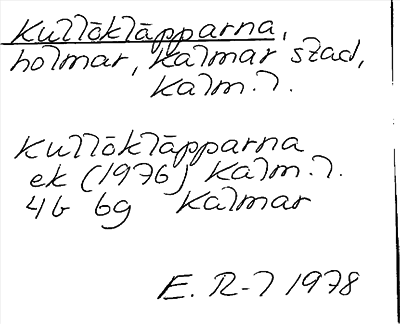 Kullöklàpparna,
holmar, Kalmar stad,
Kalm. l.
Kullöklàpparna
ek (1976) Kalm. l.
4G 6g Kalmar
E. R-l 1978